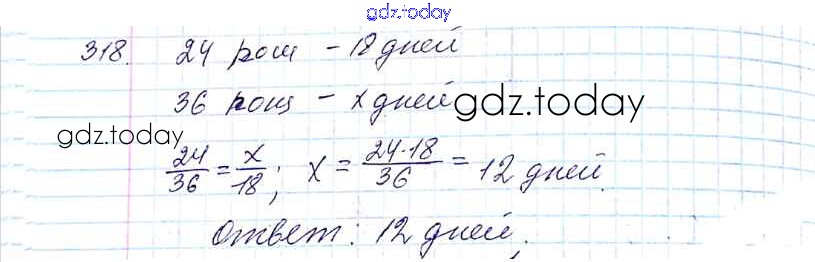 gdz.today
318. 24 рощ - 18 дней
36 рощ - x дней gdz.today
gdz.today
24/36 = x/18; x = 24·18/36 = 12 дней.
Ответ: 12 дней.